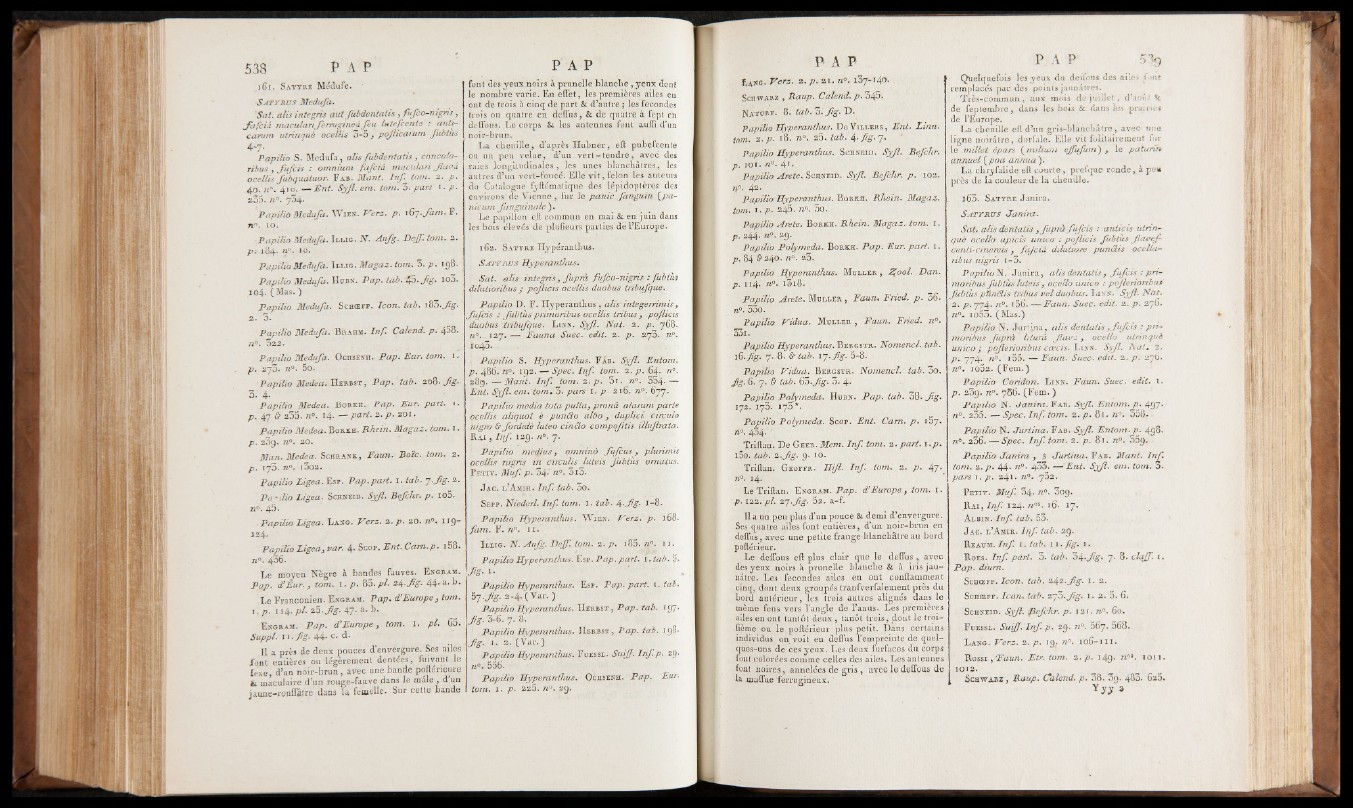 538 P A P
161. SATYRE Méduſe.
SATYRUS Meduſa.
Sat. alis integris aut ſubdentatis, fuſco-nigris,
faſciâ maculari ferrugineâ ſeu luteſcente : anti-
carum utrinquè ocellis 3-5, poſticarum ſubtùs
4-7.
Papilio S. Meduſa, alis ſubdentatis, concolo-
ribus, fuſcis : omnium faſciâ maculari flavâ
ocellis ſubquatuor. FAB. Mant. Inſ. tom. 2. p.
40. n°. 410. — Ent. Syſt. em. tom. 3. pars 1. p.
235. n°. 734.
Papilio Meduſa. WIEN. Verz. p. 167. fam. F.
n°. 10.
Papilio Meduſa. ILLIG. N. Ausg. Deſſ. tom. 2.
p. 184. n°. 10.
Papilio Meduſa. ILLIG. Magaz. tom. 3. p. 198.
Papilio Meduſa. HUBN. Pap. tab. 45. fig. 103.
104. (Mas.)
Papilio Meduſa. SCHŒFF. Icon. tab. 183. fig.
2. 3.
Papilio Meduſa. BRAHM. Inſ. Calend. p. 438.
n°. 322.
Papilio Meduſa. OCHSENH. Pap. Eur. tom. 1.
p. 273. n°. 50.
Papilio Medea. HERBST, Pap. tab. 208. fig.
3. 4.
Papilio Medea. BORKH. Pap. Eur. part. 1.
p. 47 & 235. n°. 14. — part. 2. p. 201.
Papilio Medea. BORKH. Rhein. Magaz. tom. 1.
p. 239. n°. 20.
Man. Medea. SCHRANK, Faun. Boïc. tom. 2.
p. 175. n°. 1302.
Papilio Ligea. ESP. Pap. part. 1. tab. 7. fig. 2.
Papilio Ligea. SCHNEID. Syſt. Beſchr. p. 105.
n°. 45.
Papilio Ligea. LANG. Verz. 2. p. 20. n°. 119-
124.
Papilio Ligea, var. 4. SCOP. Ent. Carn. p. 158.
n°. 436.
Le moyen Nègre à bandes fauves. ENGRAM.
Pap. d'Eur., tom. 1. p. 83. pl. 24. fig. 44. a. b.
Le Franconien. ENGRAM. Pap. d'Europe, tom.
1. p. 114. pl. 25. fig. 47. a. b.
ENGRAM. Pap. d'Europe, tom. 1. pl. 63.
Suppl. 11. fig. 44. c. d.
Il a près de deux pouces d'envergure. Ses ailes
ſont entières ou légèrement dentées, ſuivant le
ſexe, d'un noir-brun, avec une bande poſtérieure
& maculaire d'un rouge-fauve dans le mâle, d'un
jaune-rouſſâtre dans la femelle. Sur cette bande
P A P
ſont des yeux noirs à prunelle blanche, yeux dont
le nombre varie. En effet, les premières ailes en
ont de trois à cinq de part & d'autre ; les ſecondes
trois ou quatre en deſſus, & de quatre à ſept en
deſſous. Le corps & les antennes ſont auſſi d'un
noir-brun.
La chenille, d'après Hubner, eſt pubeſcente
ou un peu velue, d'un vert-tendre, avec des
raies longitudinales, les unes blanchâtres, les
autres d'un vert-foncé. Elle vit, ſelon les auteurs
du Catalogue ſyſtématique des lépidoptères des
environs de Vienne, ſur le panic ſanguin (pa-
nicum ſanguinale).
Le papillon eſt commun en mai & en juin dans
les bois élevés de pluſieurs parties de l'Europe.
162. SATYRE Hypéranthus.
SATYRUS Hyperanthus.
Sat. alis integris, ſuprà fuſco-nigris : ſubtùs
dilutioribus ; poſticis ocellis duobus tribuſque.
Papilio D. F. Hyperanthus, alis integerrimis,
fuſcis : ſubtùs primoribus ocellis tribus, poſticis
duobus tribuſque. LINN. Syſt. Nat. 2. p. 768.
n°. 127. — Fauna Suec. edit. 2. p. 273. n°.
1043.
Papilio S. Hyperanthus. FAB. Syſt. Entom.
p. 486. n°. 192. — Spec. Inſ. tom. 2. p. 64. n°.
289. — Mant. Inſ. tom. 2. p. 31. n°. 334. —
Ent. Syſt. em. tom. 3. pars 1. p. 216. n°. 677.
Papilio media tota pulla, pronâ alarum parte
ocellis aliquot è puncto albo, duplici circulo
nigro & ſordidè luteo cincto compoſitis illuſtrata.
RAI, Inſ. 129. n°. 7.
Papilio medius, omninò fuſcus, plurimis
ocellis nigris in circulis luteis ſubtùs ornatus.
PETIV. Muſ. p. 34. n°. 313.
JAC. L'AMIR. Inſ. tab. 30.
SEPP. Niederl. Inſ. tom. 1. tab. 4. fig. 1-8.
Papilio Hyperanthus. WIEN. Verz. p. 168.
fam. F. n°. 11.
ILLIG. N. Ausg. Deſſ. tom. 2. p. 183. n°. 11.
Papilio Hyperanthus. ESP. Pap. part. 1. tab. 5.
fig. 1.
Papilio Hyperanthus. ESP. Pap. part. 1. tab.
57. fig. 2-4. (Var.)
Papilio Hyperanthus. HERBST, Pap. tab. 197.
fig. 5-6. 7. 8.
Papilio Hyperanthus. HERBST, Pap. tab. 198.
fig. 1. 2. (Var.)
Papilio Hyperanthus. FUESSL. Suiſſ. Inſ. p. 29.
n°. 556.
Papilio Hyperanthus. OCHSENH. Pap. Eur.
tom. 1. p. 225. n°. 29.
P A P
LANG. Verz. 2. p. 21. n°. 137-140.
SCHWARZ, Raup. Calend. p. 345.
NATURF. 8. tab. 3. fig. D.
Papilio Hyperanthus. DE VILLERS, Ent. Linn.
tom. 2. p. 18. n°. 25. tab. 4. fig. 7.
Papilio Hyperanthus. SCHNEID. Syſt. Beſchr.
p. 101. n°. 41.
Papilio Arete. SCHNEID. Syſt. Beſchr. p. 102.
n°. 42.
Papilio Hyperanthus. BORKH. Rhein. Magaz.
tom. 1. p. 245. n°. 30.
Papilio Arete. BORKH. Rhein. Magaz. tom. 1.
p. 244. n°. 29.
Papilio Polymeda. BORKH. Pap. Eur. part. 1.
p. 84 & 240. n°. 23.
Papilio Hyperanthus. MULLER, Zool. Dan.
p. 114. n°. 1318.
Papilio Arete. MULLER, Faun. Fried. p. 36.
n°. 330.
Papilio Vidua. MULLER, Faun. Fried. n°.
331.
Papilio Hyperanthus. BERGSTR. Nomencl. tab.
16. fig. 7. 8. & tab. 17. fig. 5-8.
Papilio Vidua. BERGSTR. Nomencl. tab. 30.
fig. 6. 7. & tab. 63. fig. 3. 4.
Papilio Polymeda. HUBN. Pap. tab. 38. fig.
172. 173. 173*.
Papilio Polymeda. SCOP. Ent. Carn. p. 157.
n°. 434.
Triſtan. DE GEER. Mem. Inſ. tom. 2. part. 1. p.
150. tab. 2. fig. 9. 10.
Triſtan. GEOFFR. Hiſt. Inſ. tom. 2. p. 47.
n°. 14.
Le Triſtan. ENGRAM. Pap. d'Europe, tom. 1.
p. 122. pl. 27. fig. 52. a-f.
Il a un peu plus d'un pouce & demi d'envergure.
Ses quatre ailes ſont entières, d'un noir-brun en
deſſus, avec une petite frange blanchâtre au bord
poſtérieur.
Le deſſous eſt plus clair que le deſſus, avec
des yeux noirs à prunelle blanche & à iris jau-
nâtre. Les ſecondes ailes en ont conſtamment
cinq, dont deux groupés tranſverſalement près du
bord antérieur, les trois autres alignés dans le
même ſens vers l'angle de l'anus. Les premières
ailes en ont tantôt deux, tantôt trois, dont le troi-
ſième ou le poſtérieur plus petit. Dans certains
individus on voit en deſſus l'empreinte de quel-
ques-uns de ces yeux. Les deux ſurfaces du corps
ſont colorées comme celles des ailes. Les antennes
ſont noires, annelées de gris, avec le deſſous de
la maſſue ferrugineux.
P A P 539
Quelquefois les yeux du deſſous des ailes ſont
remplacés par des points jaunâtres.
Très-commun, aux mois de juillet, d'août &
de ſeptembre, dans les bois & dans les prairies
de l'Europe.
La chenille eſt d'un gris-blanchâtre, avec une
ligne noirâtre, dorſale. Elle vit ſolitairement ſur
le millet épars (milium effuſum), le paturin
annuel (poa annua).
La chryſalide eſt courte, preſque ronde, à peu
près de la couleur de la chenille.
163. SATYRE Janira.
SATYRUS Janira.
Sat. alis dentatis, ſuprà fuſcis : anticis utrin-
què ocello apicis unico : poſticis ſubtùs flaveſ-
centi-cinereis, faſciâ dilutiore punctis ocella-
ribus nigris 1-3.
Papilio N. Janira, alis dentatis, fuſcis : pri-
moribus ſubtùs luteis, ocello unico : poſterioribus
ſubtùs punctis tribus vel duobus. LINN. Syſt. Nat.
2. p. 774. n°. 156. — Faun. Suec. edit. 2. p. 276.
n°. 1053. (Mas.)
Papilio N. Jurtina, alis dentatis, fuſcis : pri-
moribus ſuprà liturâ flavâ, ocello utrinquè
unico ; poſterioribus cæcis. LINN. Syſt. Nat. 2.
p. 774. n°. 155. — Faun. Suec. edit. 2. p. 276.
n°. 1052. (Fem.)
Papilio Coridon. LINN. Faun. Suec. edit. 1.
p. 239. n°. 786. (Fem.)
Papilio N. Janira. FAB. Syſt. Entom. p. 497.
n°. 235. — Spec. Inſ. tom. 2. p. 81. n°. 358.
Papilio N. Jurtina. FAB. Syſt. Entom. p. 498.
n°. 236. — Spec. Inſ. tom. 2. p. 81. n°. 359.
Papilio Janira, & Jurtina. FAB. Mant. Inſ.
tom. 2. p. 44. n°. 433. — Ent. Syſt. em. tom. 3.
pars 1. p. 241. n°. 752.
PETIV. Muſ. 34. n°. 309.
RAI, Inſ. 124. nos. 16. 17.
ALBIN. Inſ. tab. 53.
JAC. L'AMIR. Inſ. tab. 29.
REAUM. Inſ. 1. tab. 11. fig. 1.
ROES. Inſ. part. 3. tab. 34. fig. 7. 8. claſſ. 1.
Pap. diurn.
SCHŒFF. Icon. tab. 242. fig. 1. 2.
SCHŒFF. Icon. tab. 273. fig. 1. 2. 5. 6.
SCHNEID. Syſt. Beſchr. p. 121. n°. 60.
FUESSL. Suiſſ. Inſ. p. 29. n°. 567. 568.
LANG. Verz. 2. p. 19. n°. 106-111.
ROSSI, Faun. Etr. tom. 2. p. 149. nos. 1011.
1012.
SCHWARZ, Raup. Calend. p. 38. 39. 483. 625.
Yyy 2